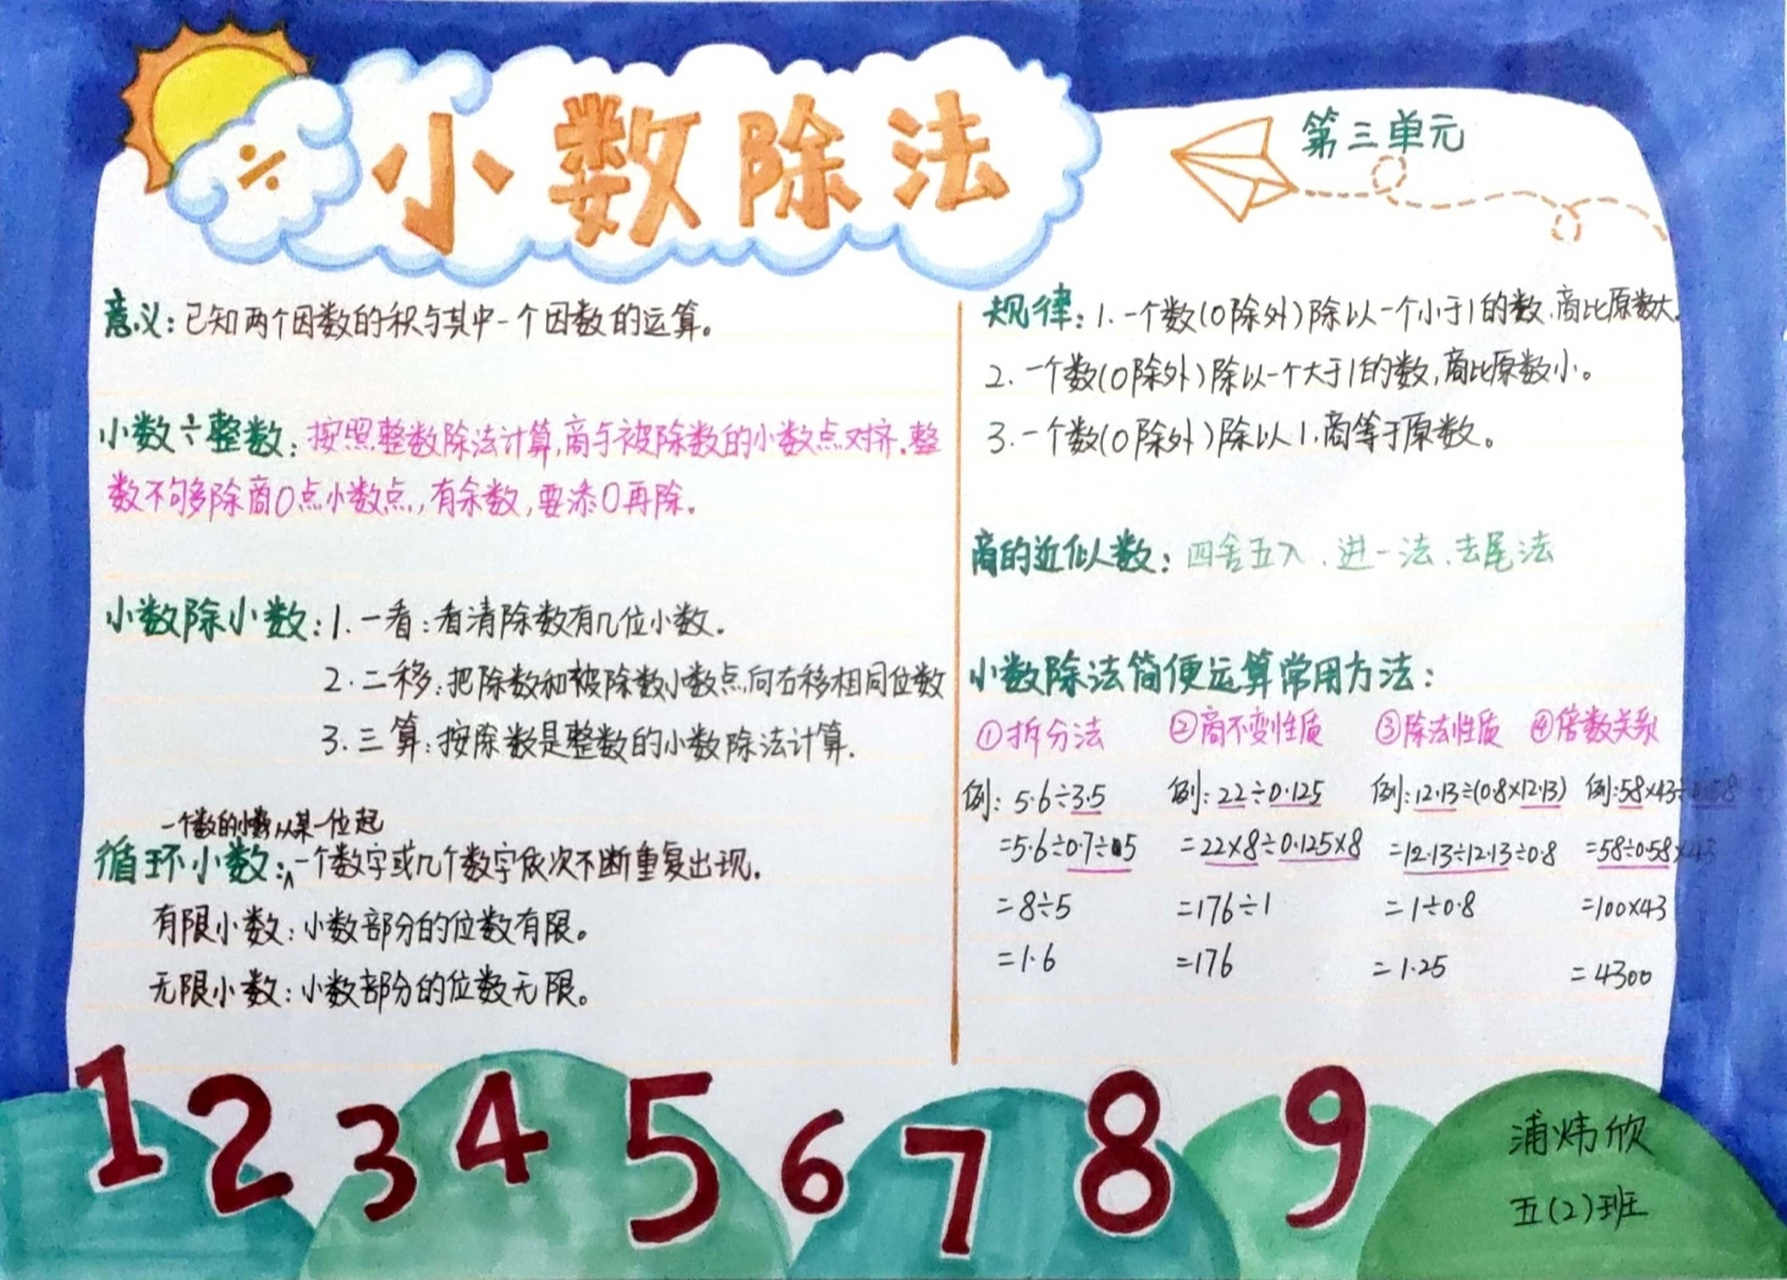 ÷ 小数除法
第三单元
意义:已知两个因数的积与其中一个因数的运算。
小数÷整数:按照整数除法计算,商与被除数的小数点对齐.整
数不够除商0点小数点,有余数,要添0再除.
小数除小数:1.一看:看清除数有几位小数.
2.二移:把除数和被除数小数点向右移相同位数
3.三算:按除数是整数的小数除法计算.
一个数的小数从某一位起
循环小数:∧一个数字或几个数字依次不断重复出现.
有限小数:小数部分的位数有限。
无限小数:小数部分的位数无限。
规律:1.一个数(0除外)除以一个小于1的数.商比原数大.
2.一个数(0除外)除以一个大于1的数,商比原数小。
3.一个数(0除外)除以1.商等于原数。
商的近似数:四舍五入.进一法.去尾法
小数除法简便运算常用方法:
①拆分法 ②商不变性质 ③除法性质 ④倍数关系
例:5.6÷3.5 例:22÷0.125 例:12.13÷(0.8×12.13) 例:58×43÷0.58
=5.6÷0.7÷5 =22×8÷0.125×8 =12.13÷12.13÷0.8 =58÷0.58×43
=8÷5 =176÷1 =1÷0.8 =100×43
=1.6 =176 =1.25 =4300
1 2 3 4 5 6 7 8 9
浦炜欣
五(2)班